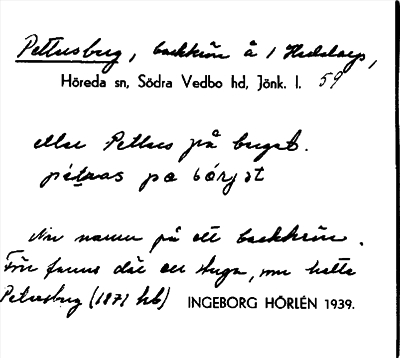 Pettusburg, backkrön å 1 Hulstarp,
Höreda sn, Södra Vedbo hd, Jönk. l. 59
eller Pettus på burget.
Nu namn på ett backkrön.
Förr fanns där en stuga, som hette
Petersburg (1871 hb) INGEBORG HÖRLÉN 1939.